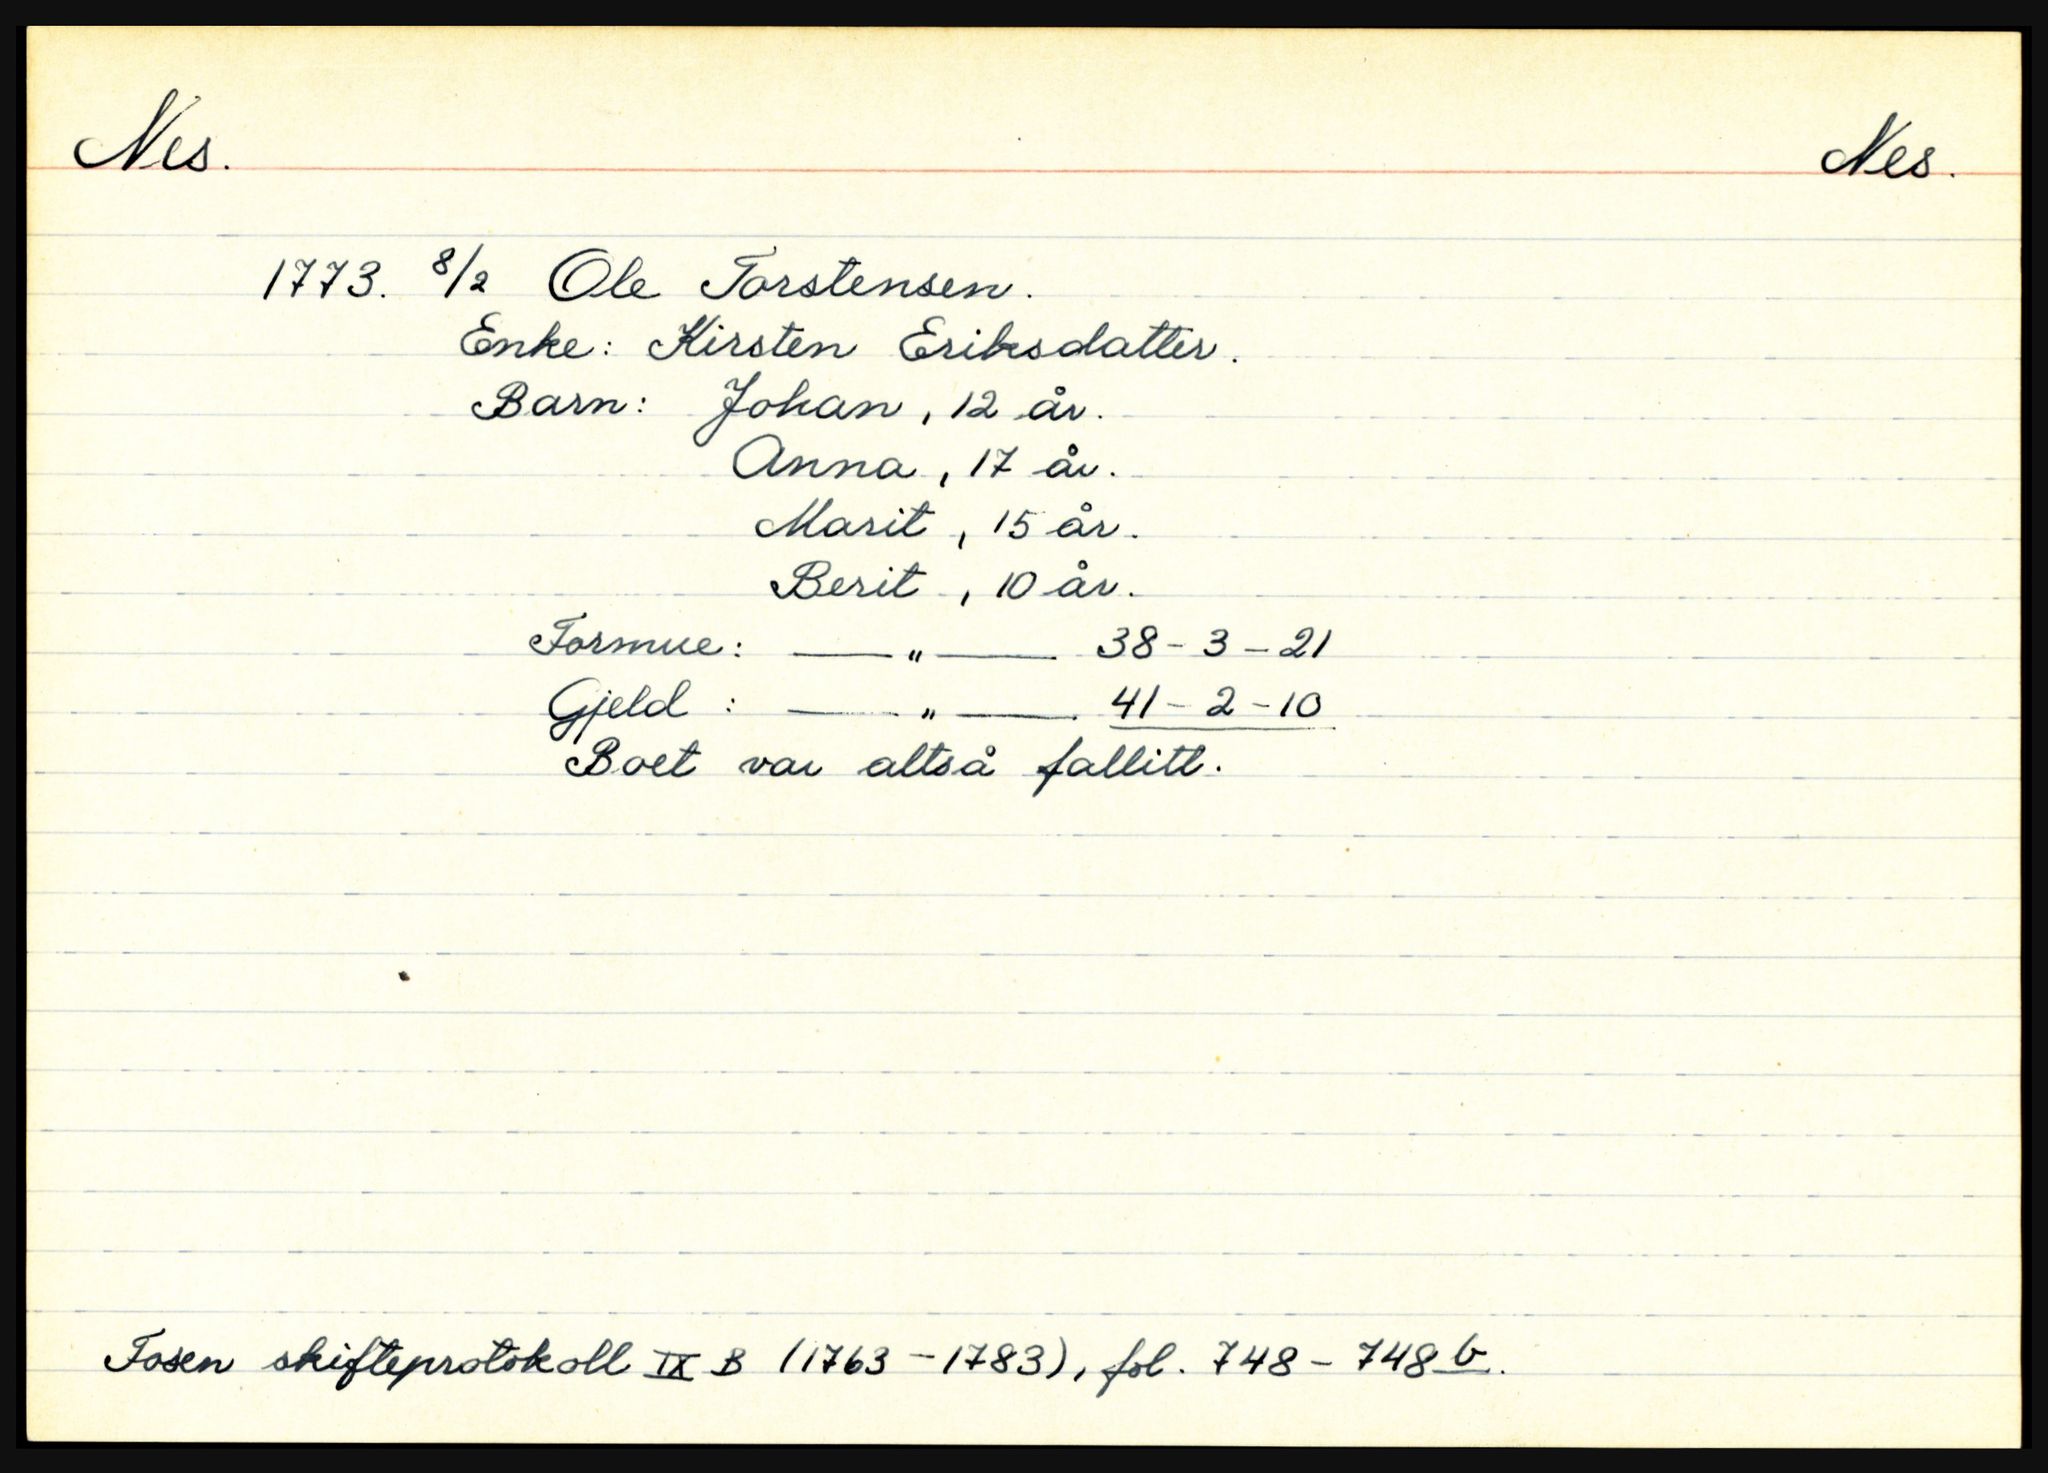 Nes. Nes.
1773. 8/2 Ole Torstensen.
Enke: Kirsten Eriksdatter.
Barn: Johan, 12 år.
Anna, 17 år.
Marit, 15 år.
Berit, 10 år.
Formue: —„— 38-3-21
Gjeld: —„— 41-2-10
Boet var altså fallitt.
Fosen skifteprotokoll IX B (1763-1783), fol. 748-748b.